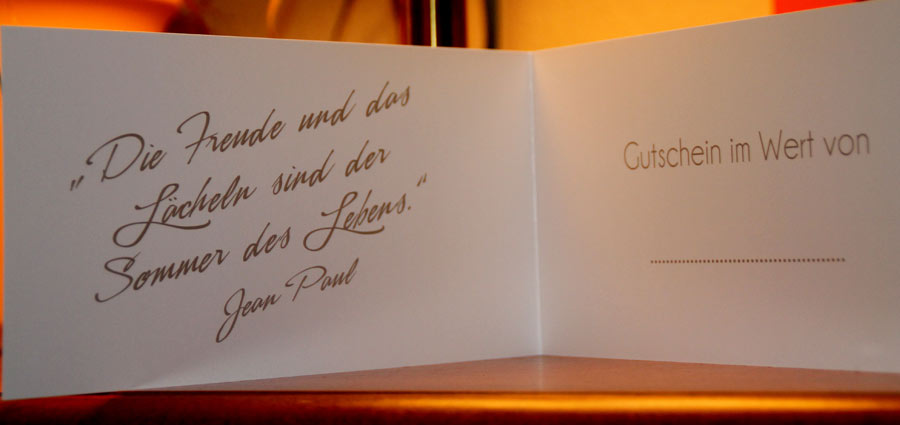 „Die Freude und das
Lächeln sind der
Sommer des Lebens.“
Jean Paul
Gutschein im Wert von
................................................